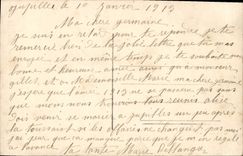 jupille le 10 janvier 1913
Ma chere germaine
je suis en retard pour te repondre je te
remercie bien de la jolie lettre que tu m'as
envoyer et en même temps je te souhaite une
bonne et heureuse année ainsi que a monsieur
gilles et a Mademoiselle Marie ma chere germaine
j'espere que l'annee 1913 ne se passera pas sans
que nous nous trouvions tous reunis alors
vous venir se marier a jupille un peu apres
la toussaint si les affaires ne changent pas moi
je que la mariage parce que je m'en regale
d'avance la tante Marie